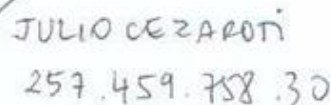 JULIO CEZAROTI
257.459.758.30